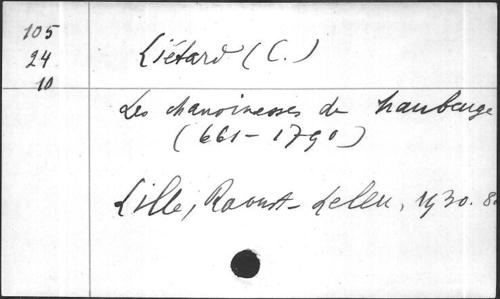 105
24
10
Liétard (C.)
Les chanoinesses de Maubeuge
(661-1790)
Lille, Raoust-Leleu, 1930. 8